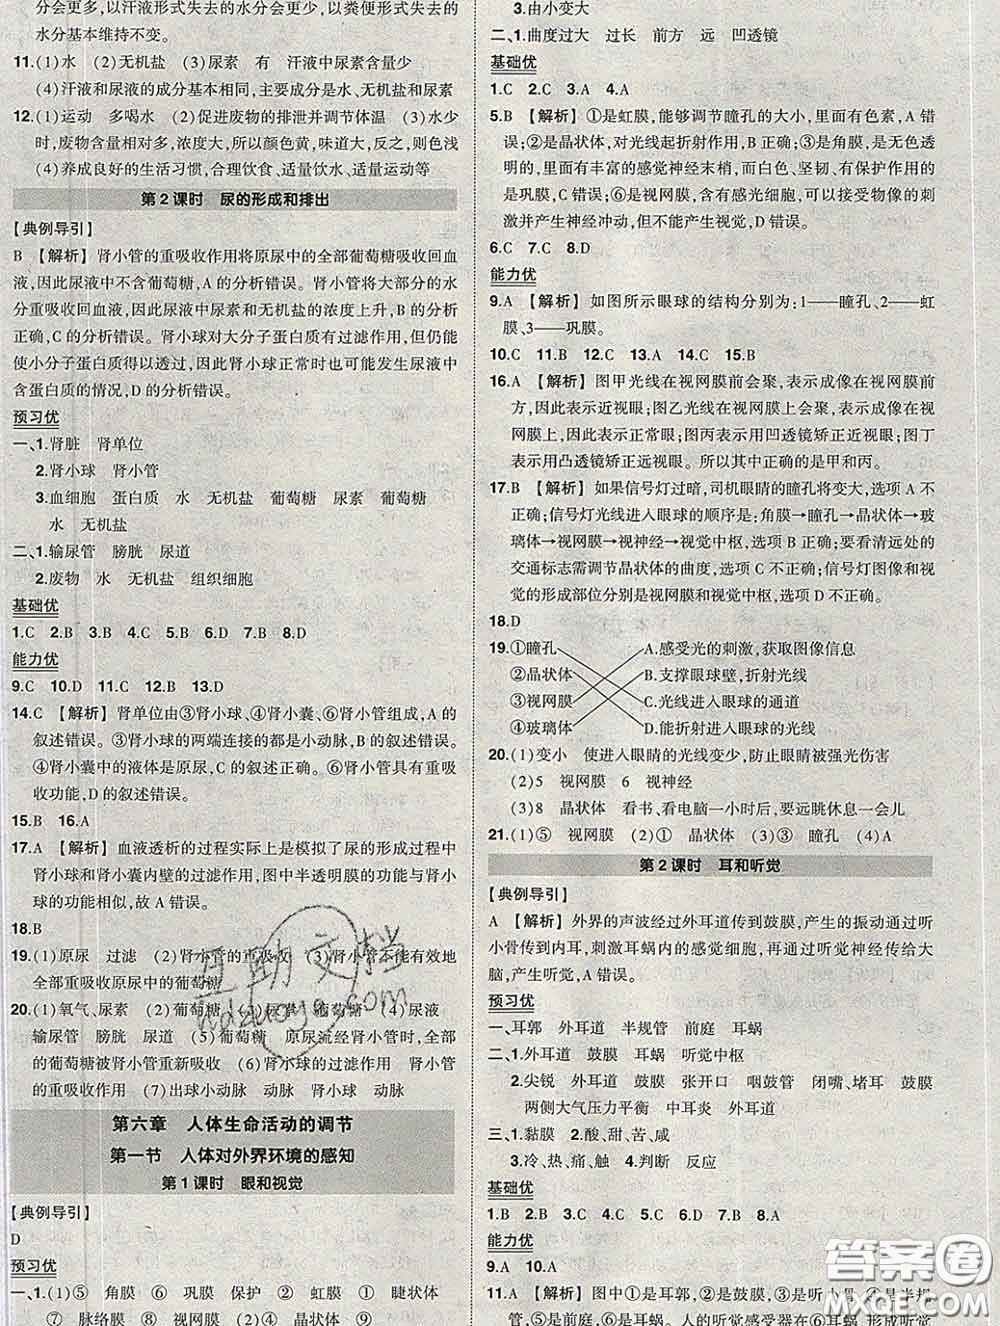 分会更多,以汗液形式失去的水分会少,以粪便形式失去的
水分基本维持不变。
11.(1)水 (2)无机盐 (3)尿素 有 汗液中尿素含量少
(4)汗液和尿液的成分基本相同,主要成分是水、无机盐和尿素
12.(1)运动 多喝水 (2)促进废物的排泄并调节体温 (3)水少
时,废物浓度大,所以颜色黄,味道大,反之,则色浅
(4)养成良好的生活习惯,合理饮食、适量饮水、适量运动等
第2课时 尿的形成和排出
【典例导引】
B 【解析】肾小管的重吸收作用将原尿中的全部葡萄糖吸收回血
液,因此尿液中不含葡萄糖,A的分析错误。肾小管将大部分的水
分重吸收回血液,因此尿液中尿素和无机盐的浓度上升,B的分析
正确,C的分析错误。肾小球对大分子蛋白质有过滤作用,但仍能
使小分子蛋白质得以透过,因此肾小球正常时也可能发生尿液中
含蛋白质的情况,D的分析错误。
预习优
一、1.肾脏 肾单位
2.肾小球 肾小管
3.血细胞 蛋白质 水 无机盐 葡萄糖 尿素 葡萄糖
水 无机盐
二、1.输尿管 膀胱 尿道
2.废物 水 无机盐 组织细胞
基础优
1.C 2.B 3.B 4.C 5.B 6.B 7.B 8.D
能力优
9.C 10.D 11.C 12.B 13.D
14.C 【解析】肾单位由③肾小球、④肾小囊、⑥肾小管组成,A的
叙述错误。③肾小球的两端连接的都是小动脉,B的叙述错误。
④肾小囊中的液体是原尿,C的叙述正确。⑥肾小管具有重吸
收功能,D的叙述错误。
15.B 16.A
17.A 【解析】血液透析的过程实际上是模拟了尿的形成过程中
肾小球和肾小囊内壁的过滤作用。图中半透明膜的功能与肾小
球的功能相似,故A错误。
18.B
19.(1)原尿 过滤 (2)肾小管的重吸收 (3)肾小管不能有效地
全部重吸收原尿中的葡萄糖
20.(1)氧气、尿素 (2)葡萄糖 (3)葡萄糖 (4)尿液
输尿管 膀胱 尿道 (5)葡萄糖 原尿流经肾小管时,全部
的葡萄糖被肾小管重新吸收 (6)肾小球的过滤作用 肾小管的
重吸收作用 (7)出球小动脉 动脉 肾小球 动脉
第六章 人体生命活动的调节
第一节 人体对外界环境的感知
第1课时 眼和视觉
【典例导引】
D
预习优
一、1.(1)⑤ 角膜 ⑥ 巩膜 保护 ② ① 睫状体
⑦ 脉络膜 ⑧ 视网膜 (2)③ 晶状体
3.由小变大
二、1.曲度过大 过长 前方 远 凹透镜
基础优
1.C 2.C 3.A 4.A
5.B 【解析】①是虹膜,能够调节瞳孔的大小,里面有色素,A错
误;②是晶状体,对光线起折射作用,B正确;③是角膜,无色透
明的,里面有丰富的感觉神经末梢,而白色、坚韧、有保护作用的
是巩膜,C错误;⑥是视网膜,含有感光细胞,可以接受物像的刺
激并产生神经冲动,但不能产生视觉,D错误。
6.C 7.C 8.D
能力优
9.A 【解析】如图所示眼球的结构分别为:1——瞳孔、2——虹
膜、3——巩膜。
10.C 11.B 12.B 13.A 14.C 15.B
16.A 【解析】图甲光线在视网膜前会聚,表示成像在视网膜前
方,因此表示近视眼;图乙光线在视网膜上会聚,表示成像在视
网膜上,因此表示正常眼;图丙表示用凹透镜矫正近视眼;图丁
表示用凸透镜矫正远视眼。所以第一组是甲和丙。
17.B 【解析】如果信号灯过暗,司机眼睛的瞳孔将变大,选项A不
正确;信号灯光线进入眼球的顺序是:角膜→瞳孔→晶状体→玻
璃体→视网膜→视神经→视觉中枢,选项B正确;要看清远处的
交通标志需调节晶状体的曲度,选项C不正确;信号灯图像和视
觉的形成部位分别是视网膜和视觉中枢,选项D不正确。
18.D
19.①瞳孔 A.感受光的刺激,获取图像信息
②晶状体 B.支撑眼球壁,折射光线
③视网膜 C.光线进入眼球的通道
④玻璃体 D.能折射进入眼球的光线
20.(1)变小 使进入眼睛的光线变少,防止眼睛被强光伤害
(2)5 视网膜 6 视神经
(3)8 晶状体 看书、看电脑一小时后,要远眺休息一会儿
21.(1)⑤ 视网膜 (2)① 晶状体 (3)③ 瞳孔 (4)A
第2课时 耳和听觉
【典例导引】
A 【解析】外界的声波经过外耳道传到鼓膜,产生的振动通过听
小骨传到内耳,刺激耳蜗内的感觉细胞,再通过听觉神经传给大
脑,产生听觉,A错误。
预习优
一、耳郭 外耳道 半规管 前庭 耳蜗
二、1.外耳道 鼓膜 耳蜗 听觉中枢
2.尖锐 外耳道 鼓膜 张开口 咽鼓管 闭嘴、堵耳 鼓膜
两侧大气压力平衡 中耳炎 鼓膜
三、1.黏膜 2.酸、甜、苦、咸
3.冷、热、痛、触 4.判断 反应
基础优
1.B 2.B 3.B 4.C 5.C 6.D 7.B 8.A
能力优
9.A 10.A
11.A 【解析】图中①是耳郭,②是外耳道,③是鼓膜,④是听小
骨,⑤是前庭,⑥是耳蜗。人的听觉感受器在⑥耳蜗,形成听觉
互助文档
hdzuoye.com
答案圈
MXQE.COM